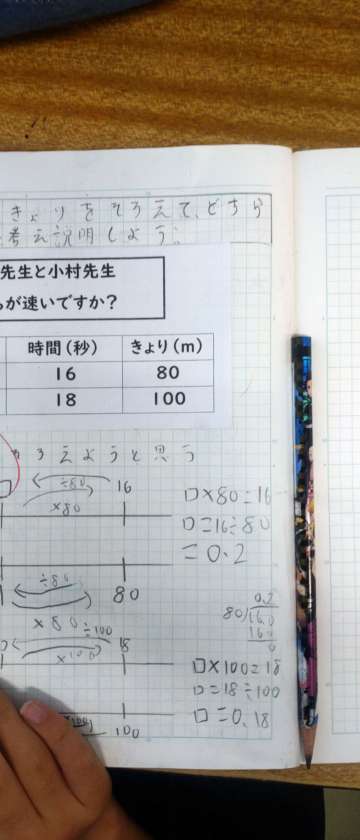 きょりをそろえて、どちら
考え説明しよう。
先生と小村先生
が速いですか?
時間(秒) きょり(m)
16 80
18 100
そろえようと思う
÷80 16
×80
□×80=16
□=16÷80
=0.2
÷80
80
×80
0.2
80)16.0
160
0
÷100 18
×100
□×100=18
□=18÷100
□=0.18
100